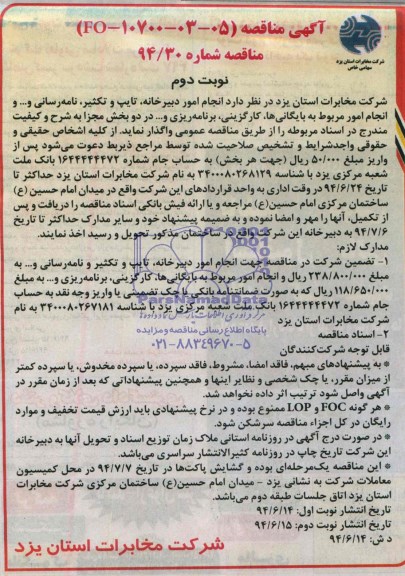 آگهی مناقصه (FO-۱۰۷۰۰-۰۳-۰۵)
مناقصه شماره ۹۴/۳۰
شرکت مخابرات استان یزد
سهامی خاص
نوبت دوم
شرکت مخابرات استان یزد در نظر دارد انجام امور دبیرخانه، تایپ و تکثیر، نامه‌رسانی و... و
انجام امور مربوط به بایگانی‌ها، کارگزینی، برنامه‌ریزی و... در دو بخش مجزا به شرح و کیفیت
مندرج در اسناد مربوطه را از طریق مناقصه عمومی واگذار نماید. از کلیه اشخاص حقیقی و
حقوقی واجدشرایط و تشخیص صلاحیت شده توسط مراجع ذیربط دعوت می‌شود پس از
واریز مبلغ ۵۰/۰۰۰ ریال (جهت هر بخش) به حساب جام شماره ۱۶۴۴۴۴۴۴۷۲ بانک ملت
شعبه مرکزی یزد با شناسه ۳۴۰۰۰۸۰۲۶۸۱۲۹ به نام شرکت مخابرات استان یزد حداکثر تا
تاریخ ۹۴/۶/۲۴ در وقت اداری به واحد قراردادهای این شرکت واقع در میدان امام حسین (ع)
ساختمان مرکزی امام حسین(ع) مراجعه و یا ارائه فیش بانکی اسناد مناقصه را دریافت و پس
از تکمیل، آنها را مهر و امضا نموده و به ضمیمه پیشنهاد خود و سایر مدارک حداکثر تا تاریخ
۹۴/۷/۶ به دبیرخانه این شرکت واقع در ساختمان مذکور تحویل و رسید اخذ نمایند.
مدارک لازم:
۱- تضمین شرکت در مناقصه جهت انجام امور دبیرخانه، تایپ و تکثیر و نامه‌رسانی و... به
مبلغ ۲۳۸/۸۰۰/۰۰۰ ریال و انجام امور مربوط به بایگانی‌ها، کارگزینی، برنامه‌ریزی و... به مبلغ
۱۱۸/۶۵۰/۰۰۰ ریال که به صورت ضمانتنامه بانکی یا چک تضمینی یا واریز وجه نقد به حساب
جام شماره ۱۶۴۴۴۴۴۴۷۲ بانک ملت شعبه مرکزی یزد با شناسه ۳۴۰۰۰۸۰۲۶۷۱۸۱ به نام
شرکت مخابرات استان یزد
ParsNamadData
پایگاه اطلاع رسانی مناقصه و مزایده
۰۲۱-۸۸۳۴۹۶۷۰-۵
۲- اسناد مناقصه
قابل توجه شرکت‌کنندگان
* به پیشنهادهای مبهم، فاقد امضا، مشروط، فاقد سپرده، یا سپرده مخدوش، یا سپرده کمتر
از میزان مقرر، یا چک شخصی و نظایر اینها و همچنین پیشنهاداتی که بعد از زمان مقرر در
آگهی واصل شود ترتیب اثر داده نخواهد شد.
* هر گونه FOC و LOP ممنوع بوده و در نرخ پیشنهادی باید ارزش قیمت تخفیف و موارد
رایگان در کل اجزاء مناقصه سرشکن شود.
* در صورت درج آگهی در روزنامه استانی ملاک زمان توزیع اسناد و تحویل آنها به دبیرخانه
این شرکت تاریخ چاپ در روزنامه کثیرالانتشار سراسری می‌باشد.
* این مناقصه یک‌مرحله‌ای بوده و گشایش پاکت‌ها در تاریخ ۹۴/۷/۷ در محل کمیسیون
معاملات شرکت به نشانی یزد - میدان امام حسین(ع) ساختمان مرکزی شرکت مخابرات
استان یزد اتاق جلسات طبقه دوم می‌باشد.
تاریخ انتشار نوبت اول: ۹۴/۶/۱۴
تاریخ انتشار نوبت دوم: ۹۴/۶/۱۵
د ش: ۹۴/۶/۱۴
شرکت مخابرات استان یزد